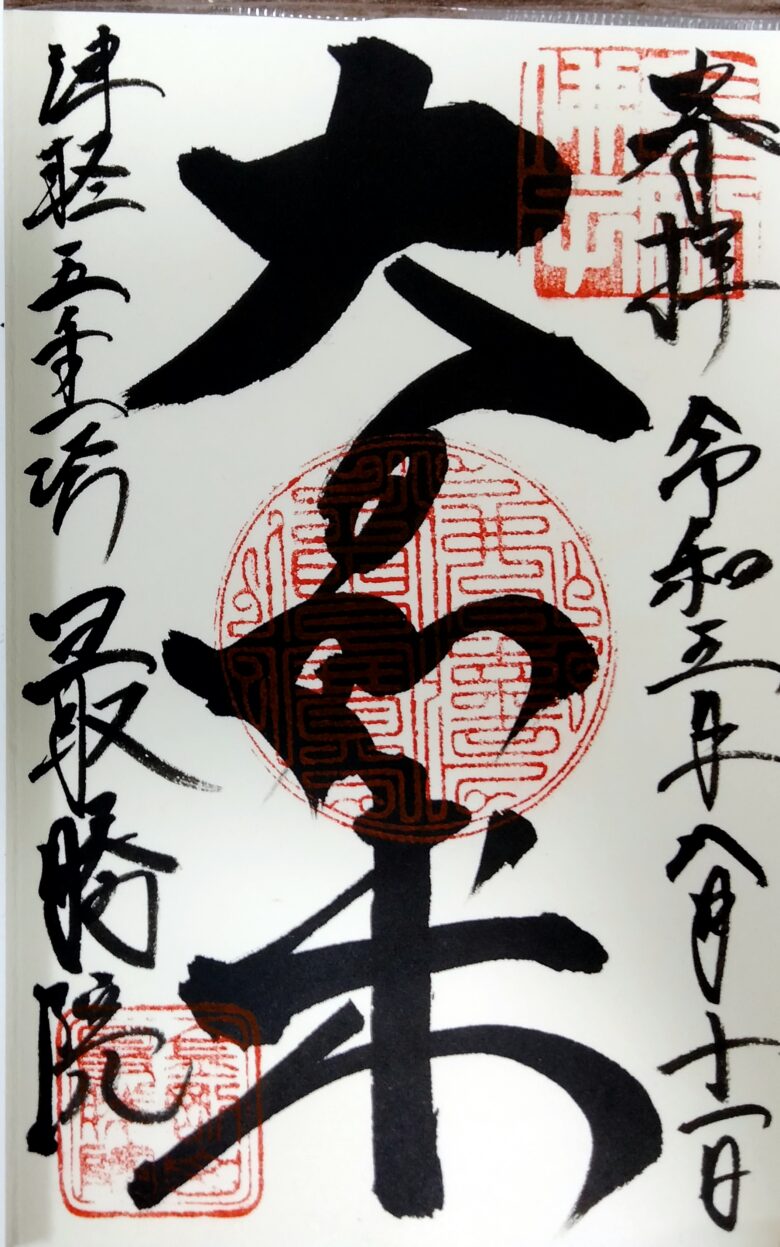 奉拝 令和三年八月十一日
大日如来
津軽五重塔 最勝院